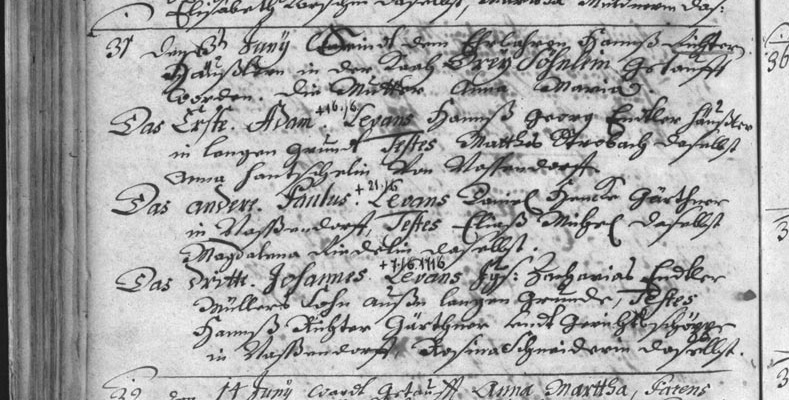 Elisabeth daselbst,
31 den 6t Juny Seindt dem Ehrbahren Hannß Richter
Häußlern in der Drey Söhnlein Getaufft
worden. Die Mutter Anna Maria.
Das Erste. Adam. +16/6 Levans Hannß Georg Endler Häußler
in langen Grundt Testes Matthes Strobach daselbst
Anna von Vassendorff.
Das andere. Paulus. +21/6 Levans Daniel Gärthner
in Vaßendorff, Testes Eliaß Michel daselbst
Magdalena daselbst.
Das dritte. Josannes +7/6 1716 Levans Zacharias Endler
Müllers Sohn außm langen Grunde, Testes
Hannß Richter Gärthner undt Gerichtsschöppe
in Vaßendorff Rosina Schneiderin daselbst.
32 den 14 Juny wardt Getaufft Anna Marttha, Parens
36
3
3